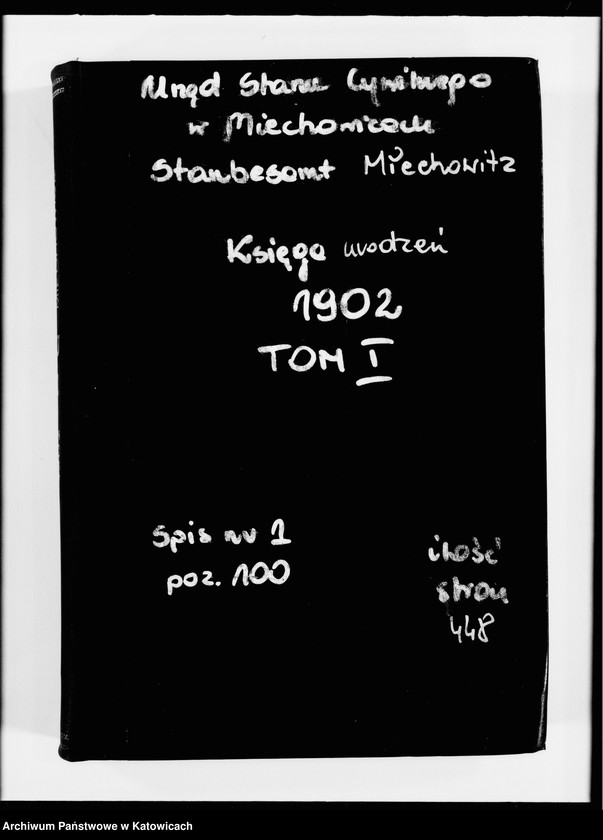 Urząd Stanu Cywilnego
w Miechowicach
Stanbesamt Miechowitz
Księga urodzeń
1902
TOM I
Spis nr 1
poz. 100
ilość
stron
448
Archiwum Państwowe w Katowicach